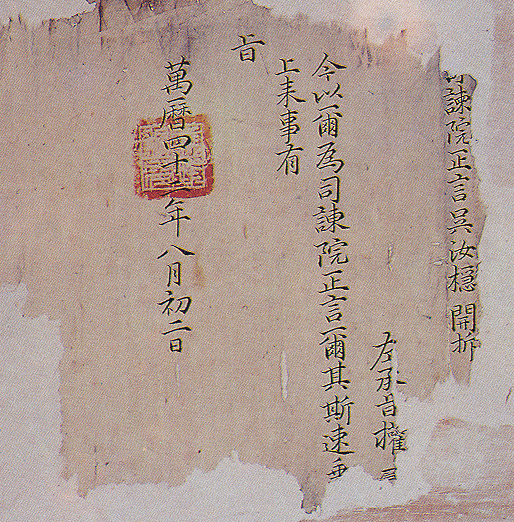 諫院正言吳汝檼 開拆
左承旨權
今以爾為司諫院正言爾其斯速乘
上来事有
旨
萬曆四十二年八月初二日